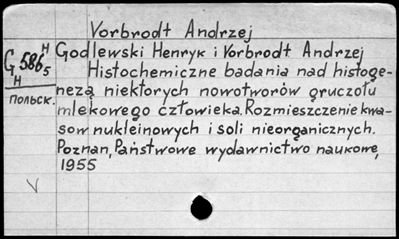 Vorbrodt Andrzej
G 586 H 5
H
польск.
Godlewski Henryk i Vorbrodt Andrzej
Histochemiczne badania nad histoge-
nezą niektorych nowotworów gruczołu
mlekowego człowieka. Rozmieszczenie kwa-
sow nukleinowych i soli nieorganicznych.
Poznan, Państwowe wydawnictwo naukowe,
1955